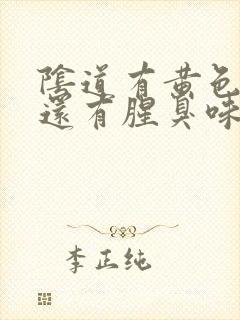 陰道有黄色
還有腥臭味
李正纯